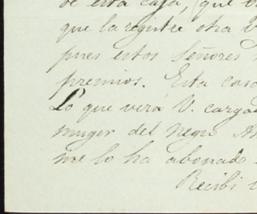 de esta casa, (que
que la registre otra
pues estos Señores
premios. Esta casa
Lo que vera V. cargad
muger del Negro
me lo ha abonado
Recibi